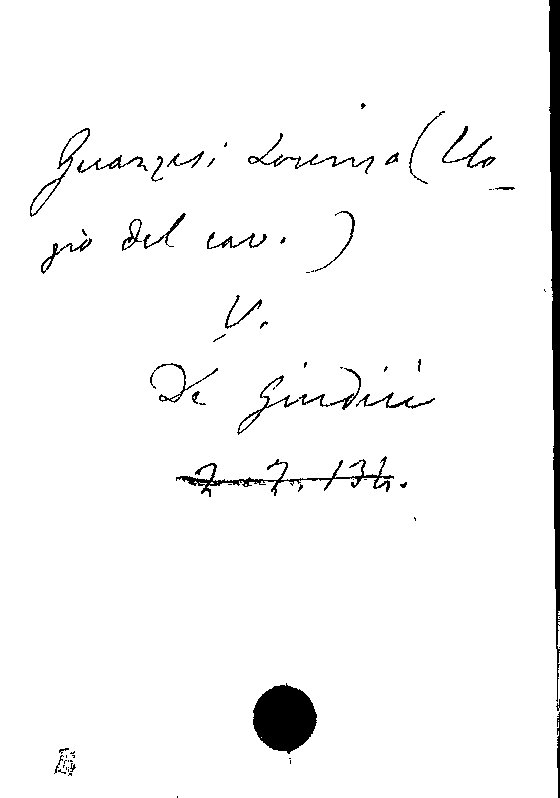 Guanzesi Lorenzo (Elo-
gio del cav. )
V.
De Giudici
2. 7. 134.